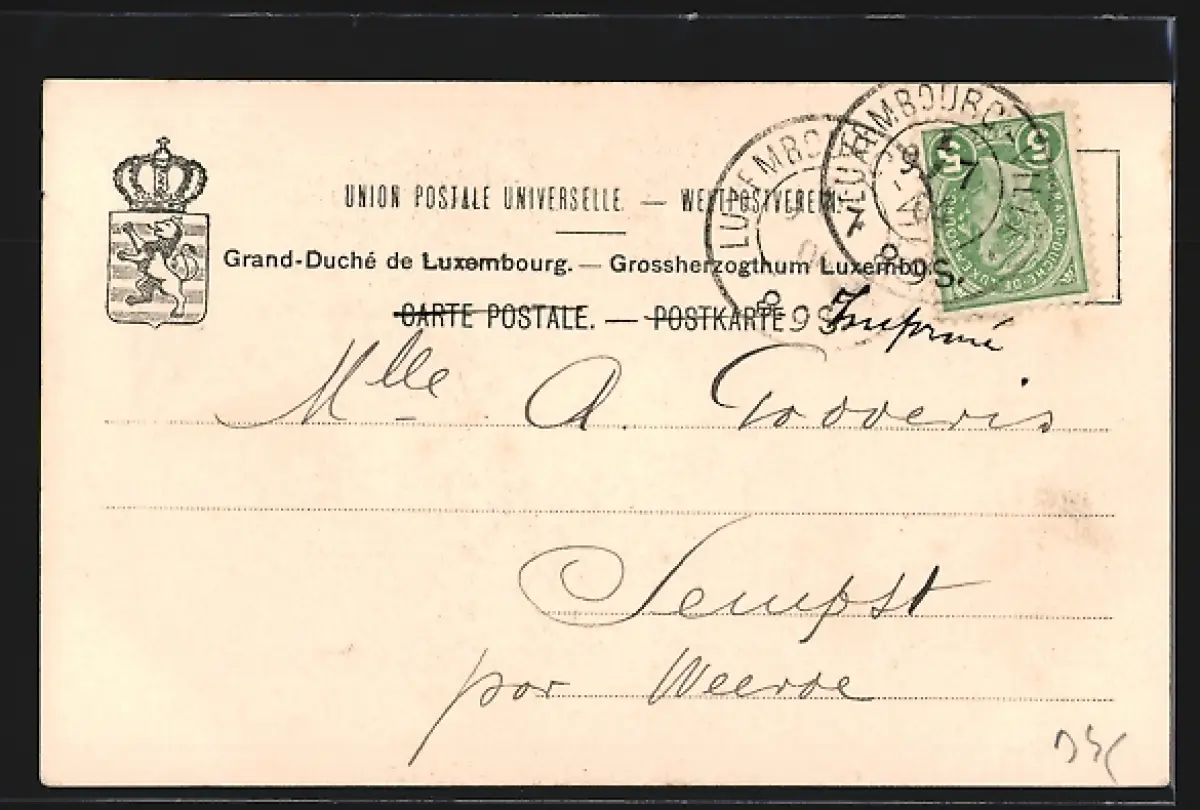 UNION POSTALE UNIVERSELLE. — WELTPOSTVEREIN.
Grand-Duché de Luxembourg. — Grossherzogthum Luxemburg.
CARTE POSTALE. — POSTKARTE
LUXEMBOURG
LUXEMBOURG
8-9S.
8-9S.
5 5
GRAND-DUCHÉ-DE-LUXEMBOURG
Imprimé
Mlle A. Godderis
Sempst
par Weerde